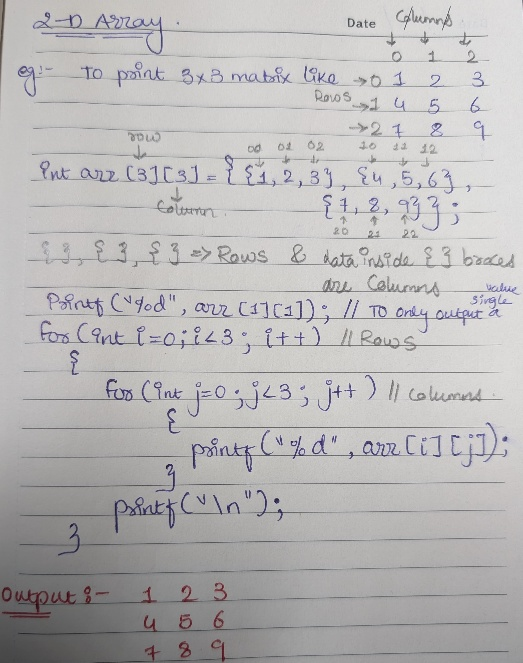 2-D Array.
Date
Columns
0 1 2
eg:- To print 3x3 matrix like → 0 1 2 3
Rows → 1 4 5 6
→ 2 7 8 9
row
00 01 02 10 11 12
int arr [3][3] = { {1, 2, 3}, {4, 5, 6},
Column. {7, 8, 9} };
20 21 22
{ }, { }, { } => Rows & data inside { } braces
are Columns
Printf ("%d", arr [1][1]); // To only output a single value
for (int i=0; i<3; i++) // Rows
{
for (int j=0; j<3; j++) // columns.
{
printf ("%d", arr [i][j]);
}
printf ("\n");
}
Output :- 1 2 3
4 5 6
7 8 9